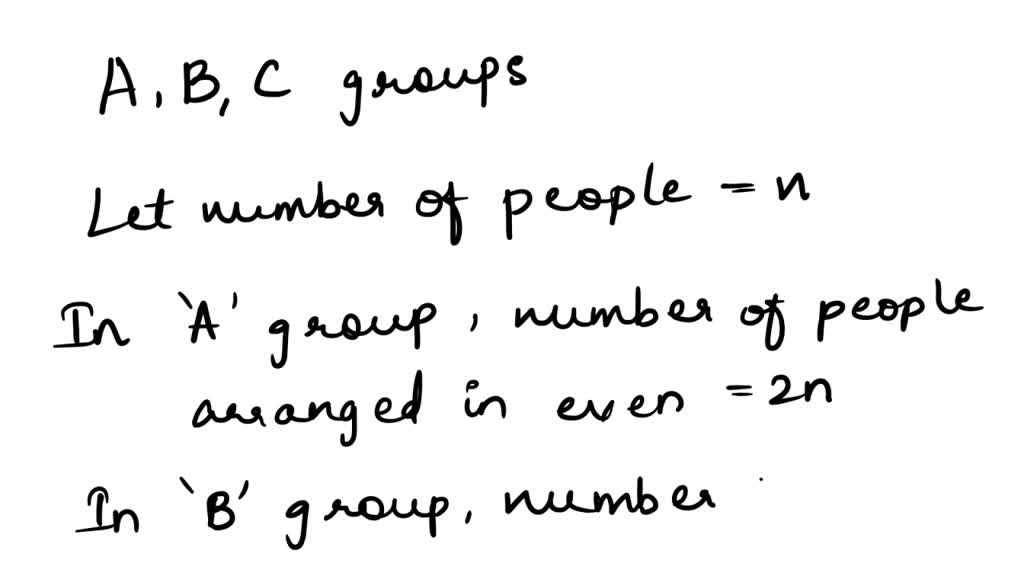 A, B, C groups
Let number of people = n
In 'A' group, number of people
arranged in even = 2n
In 'B' group, number